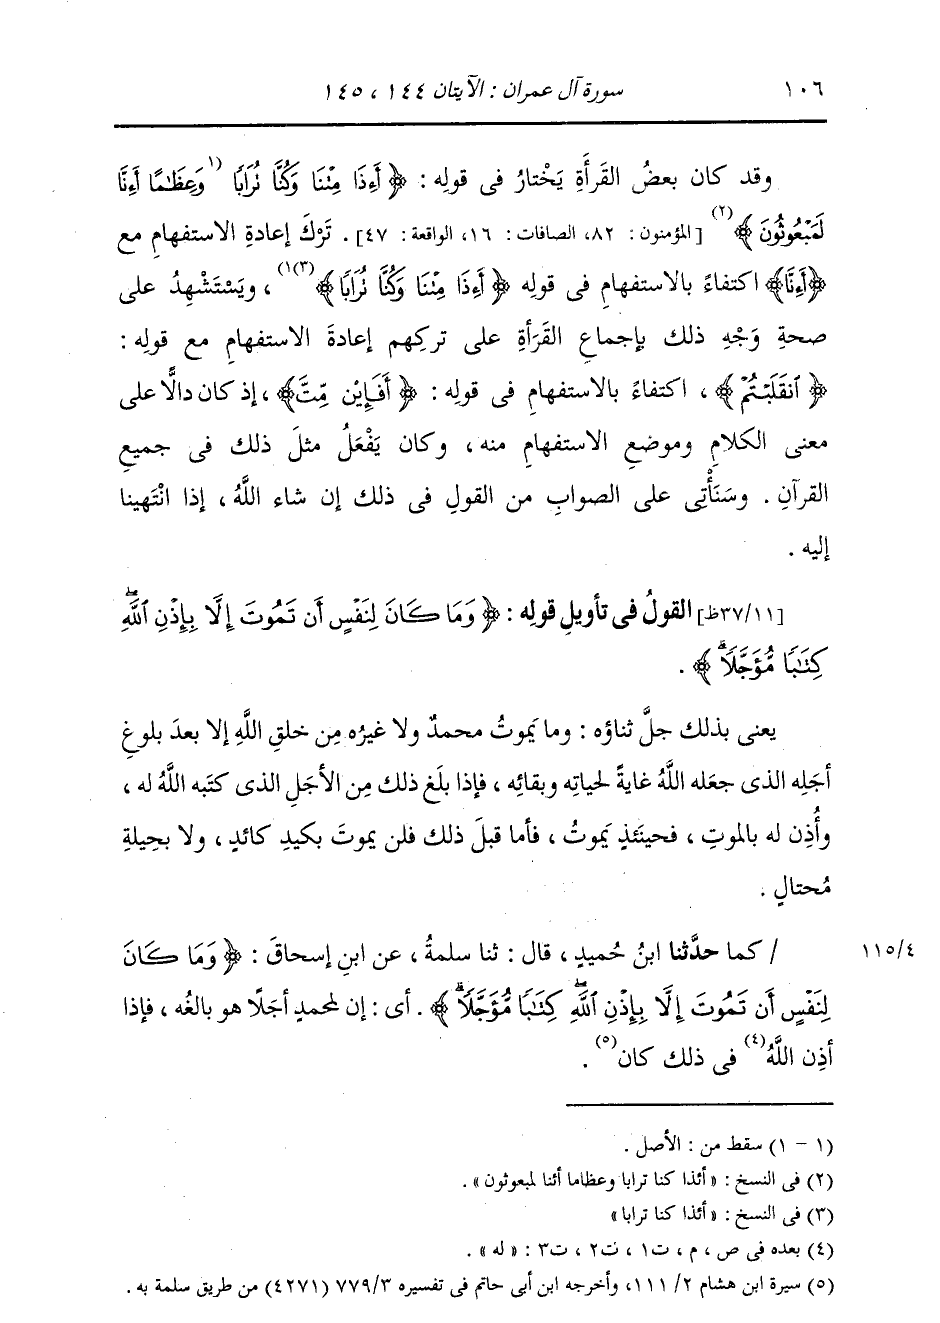 ١٠٦ سورة آل عمران : الآيتان ١٤٤ ، ١٤٥
وقد كان بعضُ القَرَأَةِ يَخْتارُ فى قولِه : ﴿ أَءِذَا مِتْنَا وَكُنَّا تُرَابًا (١وَعِظَـٰمًا أَءِنَّا
لَمَبْعُوثُونَ ﴾(٢) [المؤمنون : ٨٢، الصافات : ١٦، الواقعة : ٤٧] . تَرْكَ إعادةِ الاستفهامِ مع
﴿أَءِنَّا﴾ اكتفاءً بالاستفهامِ فى قولِه ﴿ أَءِذَا مِتْنَا وَكُنَّا تُرَابًا ﴾(٣)١) ، ويَسْتَشْهِدُ على
صحةِ وَجْهِ ذلك بإجماعِ القَرَأةِ على تركِهم إعادةَ الاستفهامِ مع قولِه :
﴿ ٱنقَلَبْتُمْ ﴾ ، اكتفاءً بالاستفهامِ فى قولِه : ﴿ أَفَإِيْن مِّتَّ ﴾ ، إذ كان دالًّا على
معنى الكلامِ وموضعِ الاستفهامِ منه ، وكان يَفْعَلُ مثلَ ذلك فى جميعِ
القرآنِ . وسَنَأْتِى على الصوابِ من القولِ فى ذلك إن شاء اللَّهُ ، إذا انْتَهينا
إليه .
[٣٧/١١ظ] القولُ فى تأويلِ قولِه : ﴿ وَمَا كَانَ لِنَفْسٍ أَن تَمُوتَ إِلَّا بِإِذْنِ ٱللَّهِ
كِتَـٰبًا مُّؤَجَّلًا ۗ ﴾ .
يعنى بذلك جلَّ ثناؤه : وما يَموتُ محمدٌ ولا غيرُه مِن خلقِ اللَّهِ إلا بعدَ بلوغِ
أجَلِه الذى جعَله اللَّهُ غايةً لحياتِه وبقائِه ، فإذا بلَغ ذلك مِن الأجَلِ الذى كتَبه اللَّهُ له ،
وأُذِن له بالموتِ ، فحينَئذٍ يَموتُ ، فأما قبلَ ذلك فلن يموتَ بكيدِ كائدٍ ، ولا بحِيلةِ
مُحتالٍ .
٤/ ١١٥ / كما حدَّثنا ابنُ حُميدٍ ، قال : ثنا سلمةُ ، عن ابنِ إسحاقَ : ﴿ وَمَا كَانَ
لِنَفْسٍ أَن تَمُوتَ إِلَّا بِإِذْنِ ٱللَّهِ كِتَـٰبًا مُّؤَجَّلًا ۗ ﴾ . أى : إن لمحمدٍ أجلًا هو بالغُه ، فإذا
أذِن اللَّهُ(٤) فى ذلك كان(٥) .
(١ - ١) سقط من : الأصل .
(٢) فى النسخ : « أئذا كنا ترابا وعظاما أئنا لمبعوثون » .
(٣) فى النسخ : « أئذا كنا ترابا »
(٤) بعده فى ص ، م ، ت١ ، ت٢ ، ت٣ : « له » .
(٥) سيرة ابن هشام ٢/ ١١١، وأخرجه ابن أبى حاتم فى تفسيره ٧٧٩/٣ (٤٢٧١) من طريق سلمة به .